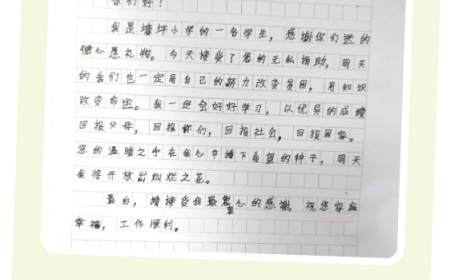 你们好！
我是墙坪小学的一名学生，感谢你们送的
暖心愿礼物。今天接受了您的无私援助，明天
的我们也一定用自己的努力改变贫困，用知识
改变命运。我一定会好好学习，以优异的成绩
回报父母，回报你们，回报社会，回报国家。
您的温暖之手在我心中播下希望的种子，明天
会将开放出灿烂之花。
最后，请接受我最衷心的感谢，祝您家庭
幸福，工作顺利。